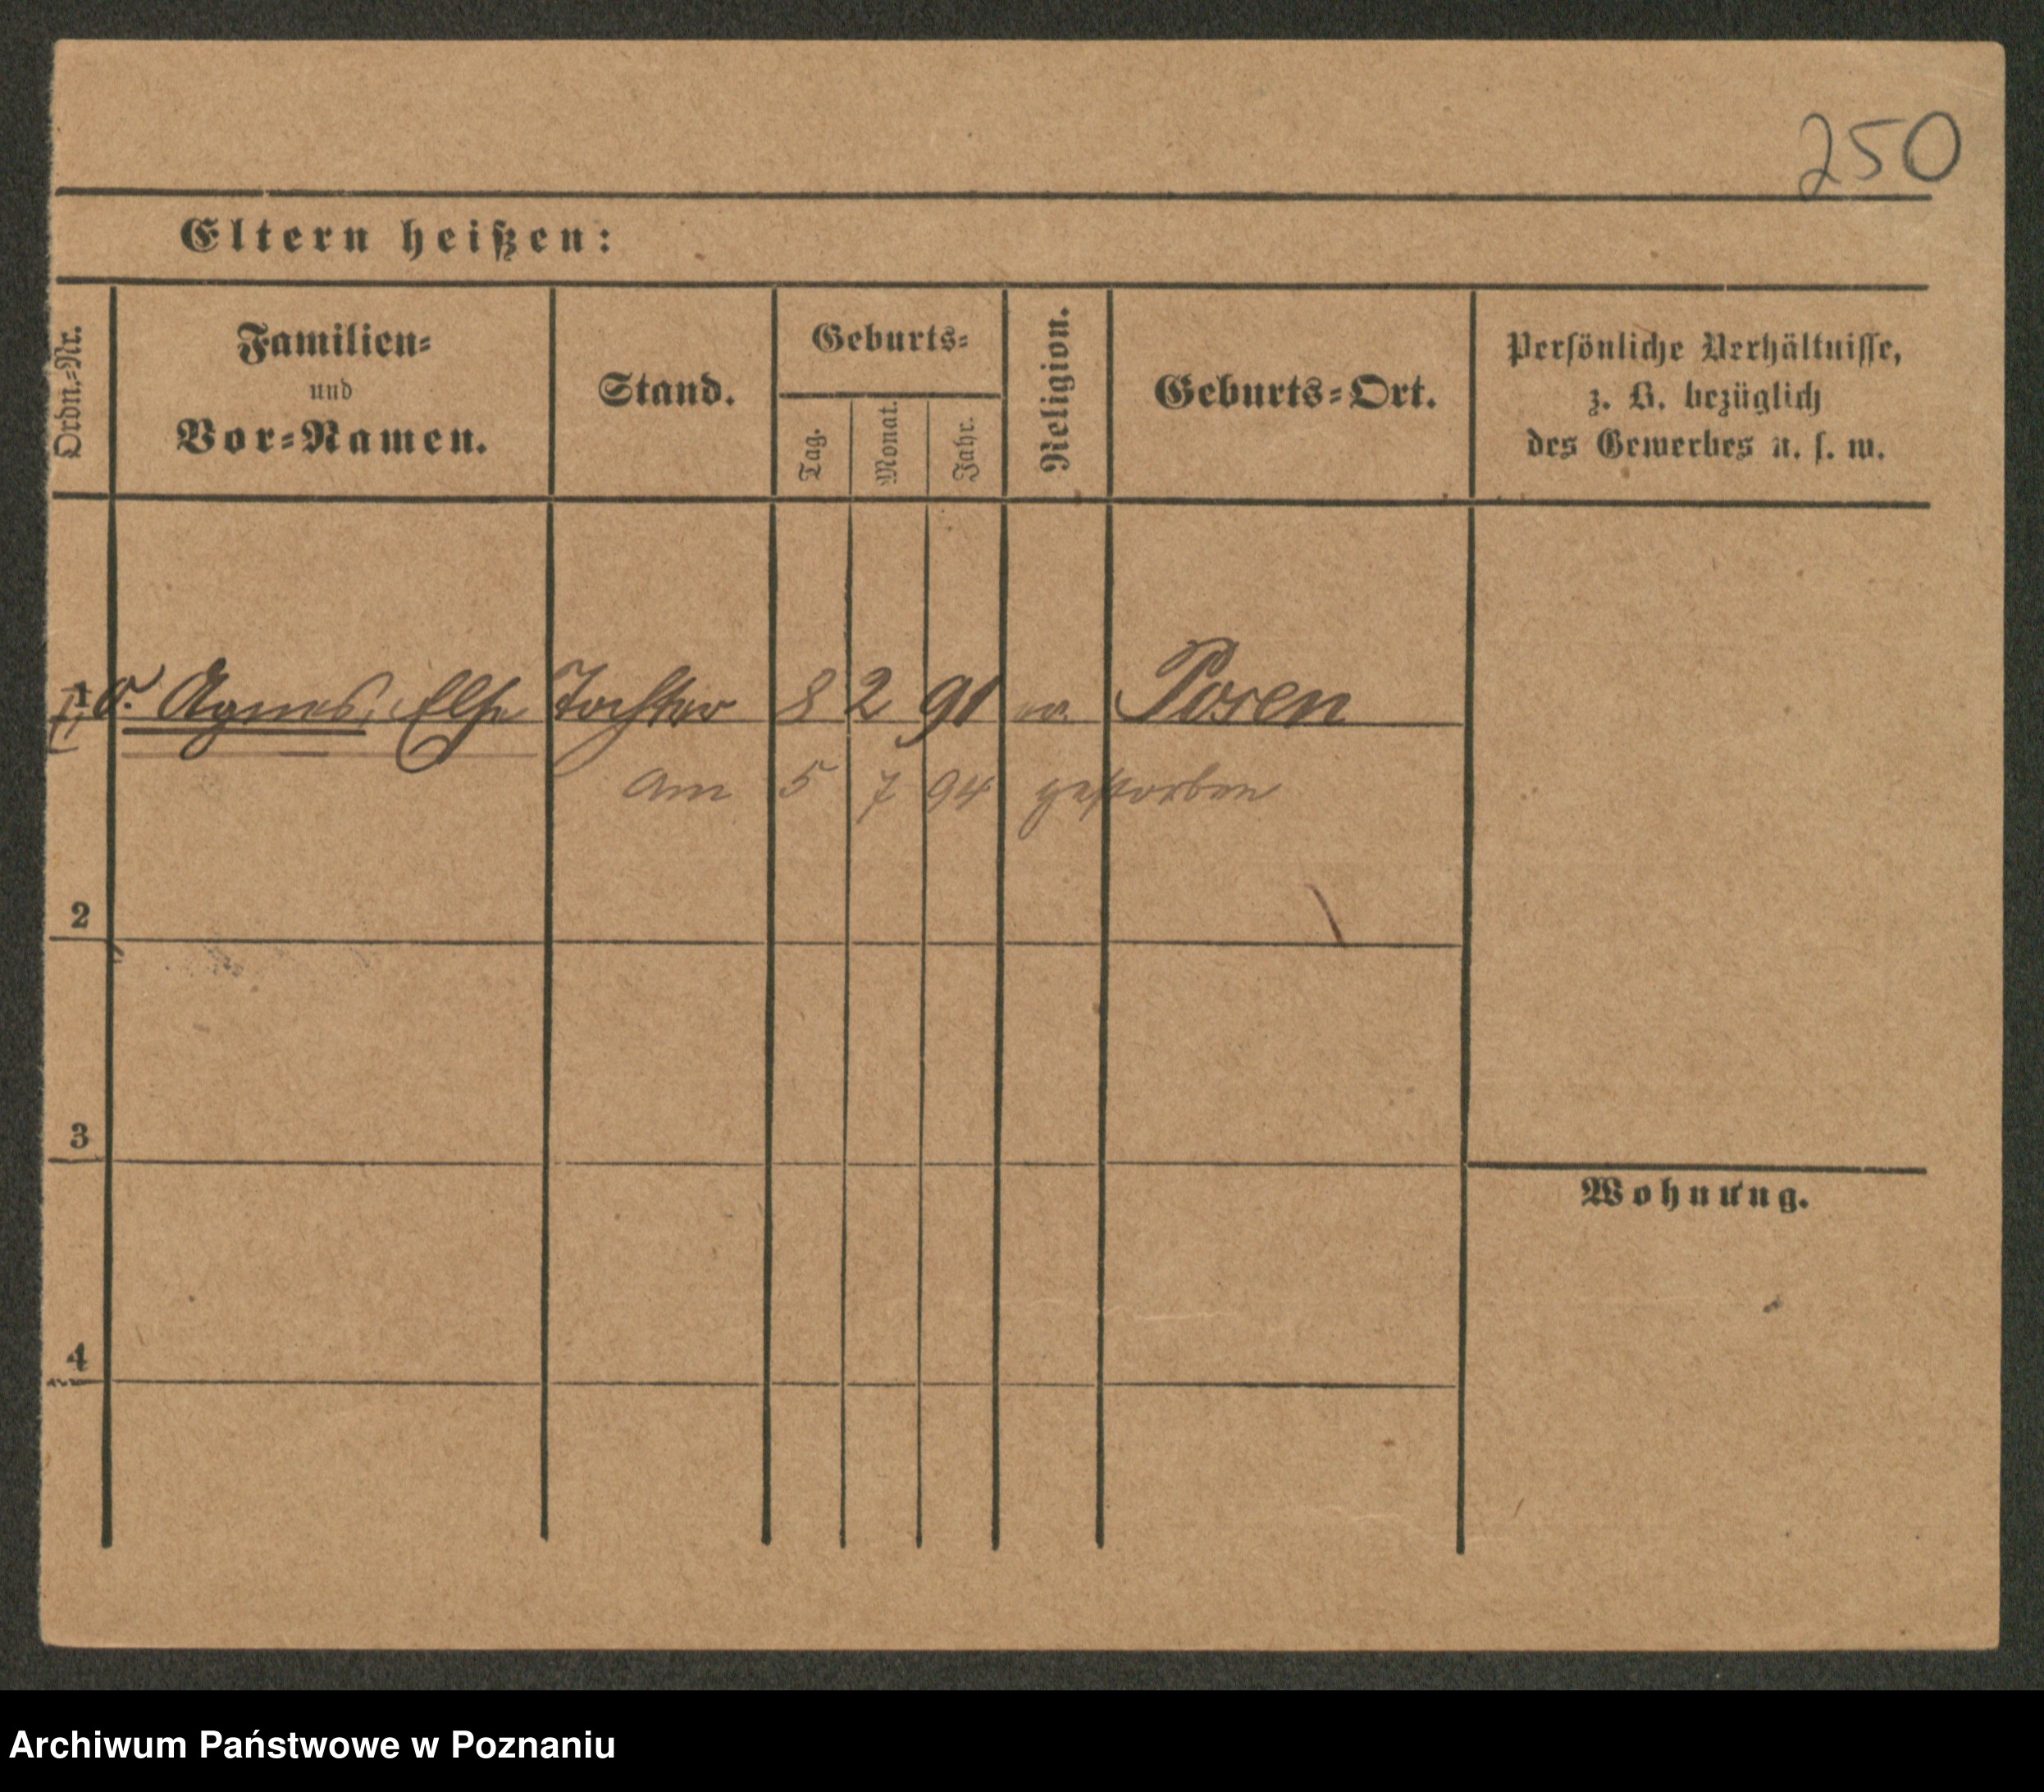 250
Eltern heißen:
Ordn.-Nr.
Familien-
und
Vor-Namen.
Stand.
Geburts-
Tag.
Monat.
Jahr.
Religion.
Geburts-Ort.
Persönliche Verhältnisse,
z. B. bezüglich
des Gewerbes u. s. w.
1 Agnes, Else Tochter 8 2 91 Posen
am 5 7 94 gestorben
2
3
Wohnung.
4
Archiwum Państwowe w Poznaniu